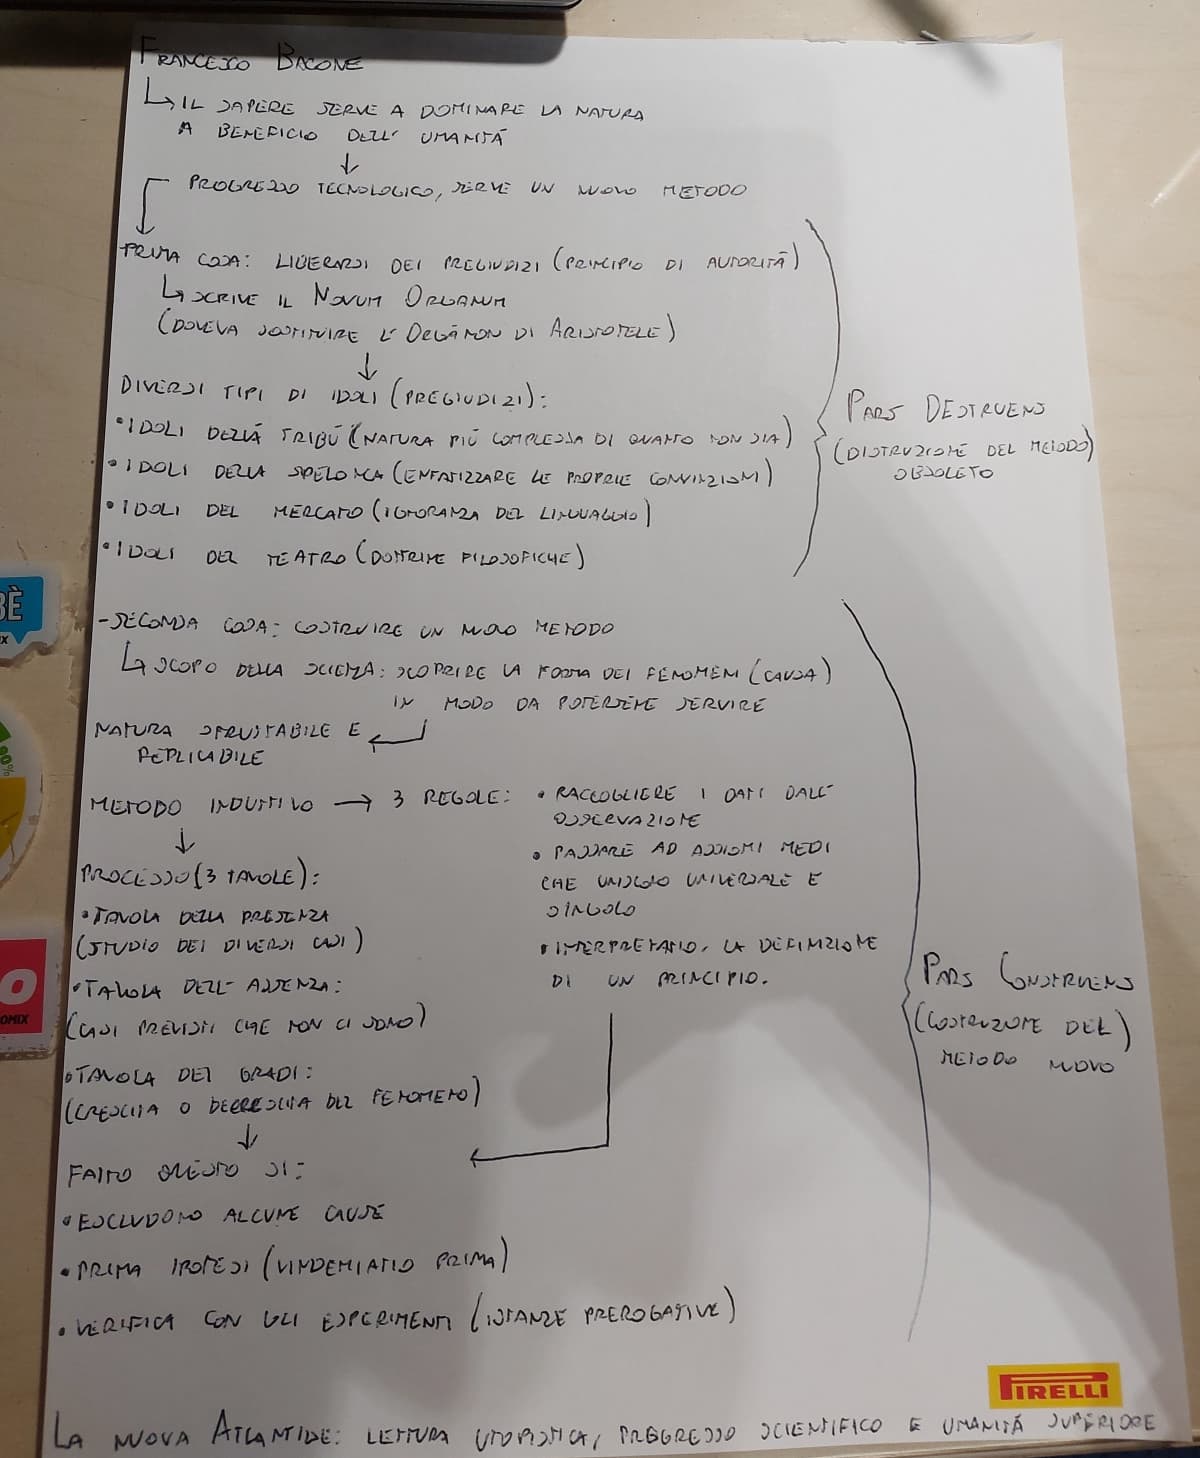 FRANCESCO BACONE
↳ IL SAPERE SERVE A DOMINARE LA NATURA
A BENEFICIO DELL' UMANITÁ
↓
PROGRESSO TECNOLOGICO, SERVE UN NUOVO METODO
PRIMA COSA: LIBERARSI DEI PREGIUDIZI (PRINCIPIO DI AUTORITÁ)
↳ SCRIVE IL NOVUM ORGANUM
(DOVEVA SOSTITUIRE L' ORGÀNON DI ARISTOTELE)
↓
DIVERSI TIPI DI IDOLI (PREGIUDIZI):
• IDOLI DELLA TRIBÚ (NATURA PIÚ COMPLESSA DI QUANTO NON SIA)
• IDOLI DELLA SPELONCA (ENFATIZZARE LE PROPRIE CONVINZIONI)
• IDOLI DEL MERCATO (IGNORANZA DEL LINGUAGGIO)
• IDOLI DEL TEATRO (DOTTRINE FILOSOFICHE)
PARS DESTRUENS
(DISTRUZIONE DEL METODO)
OBSOLETO
- SECONDA COSA: COSTRUIRE UN NUOVO METODO
↳ SCOPO DELLA SCIENZA: SCOPRIRE LA FORMA DEI FENOMENI (CAUSA)
IN MODO DA POTERSENE SERVIRE
NATURA SFRUTTABILE E
REPLICABILE
METODO INDUTTIVO → 3 REGOLE:
• RACCOGLIERE I DATI DALL'
OSSERVAZIONE
• PASSARE AD ASSIOMI MEDI
CHE UNISCONO UNIVERSALE E
SINGOLO
• INTERPRETATIO, LA DEFINIZIONE
DI UN PRINCIPIO.
↓
PROCESSO (3 TAVOLE):
• TAVOLA DELLA PRESENZA
(STUDIO DEI DIVERSI CASI)
• TAVOLA DELL' ASSENZA:
(CASI PREVISTI CHE NON CI SONO)
• TAVOLA DEI GRADI:
(CRESCITA O DECRESCITA DEL FENOMENO)
↓
FATTO QUESTO SI:
• ESCLUDONO ALCUNE CAUSE
• PRIMA IPOTESI (VINDEMIATIO PRIMA)
• VERIFICA CON GLI ESPERIMENTI (ISTANZE PREROGATIVE)
PARS CONSTRUENS
(COSTRUZIONE DEL)
METODO NUOVO
PIRELLI
LA NUOVA ATLANTIDE: LETTURA UTOPISTICA, PROGRESSO SCIENTIFICO E UMANITÁ SUPERIORE
BÈ
90%
O
OMIX